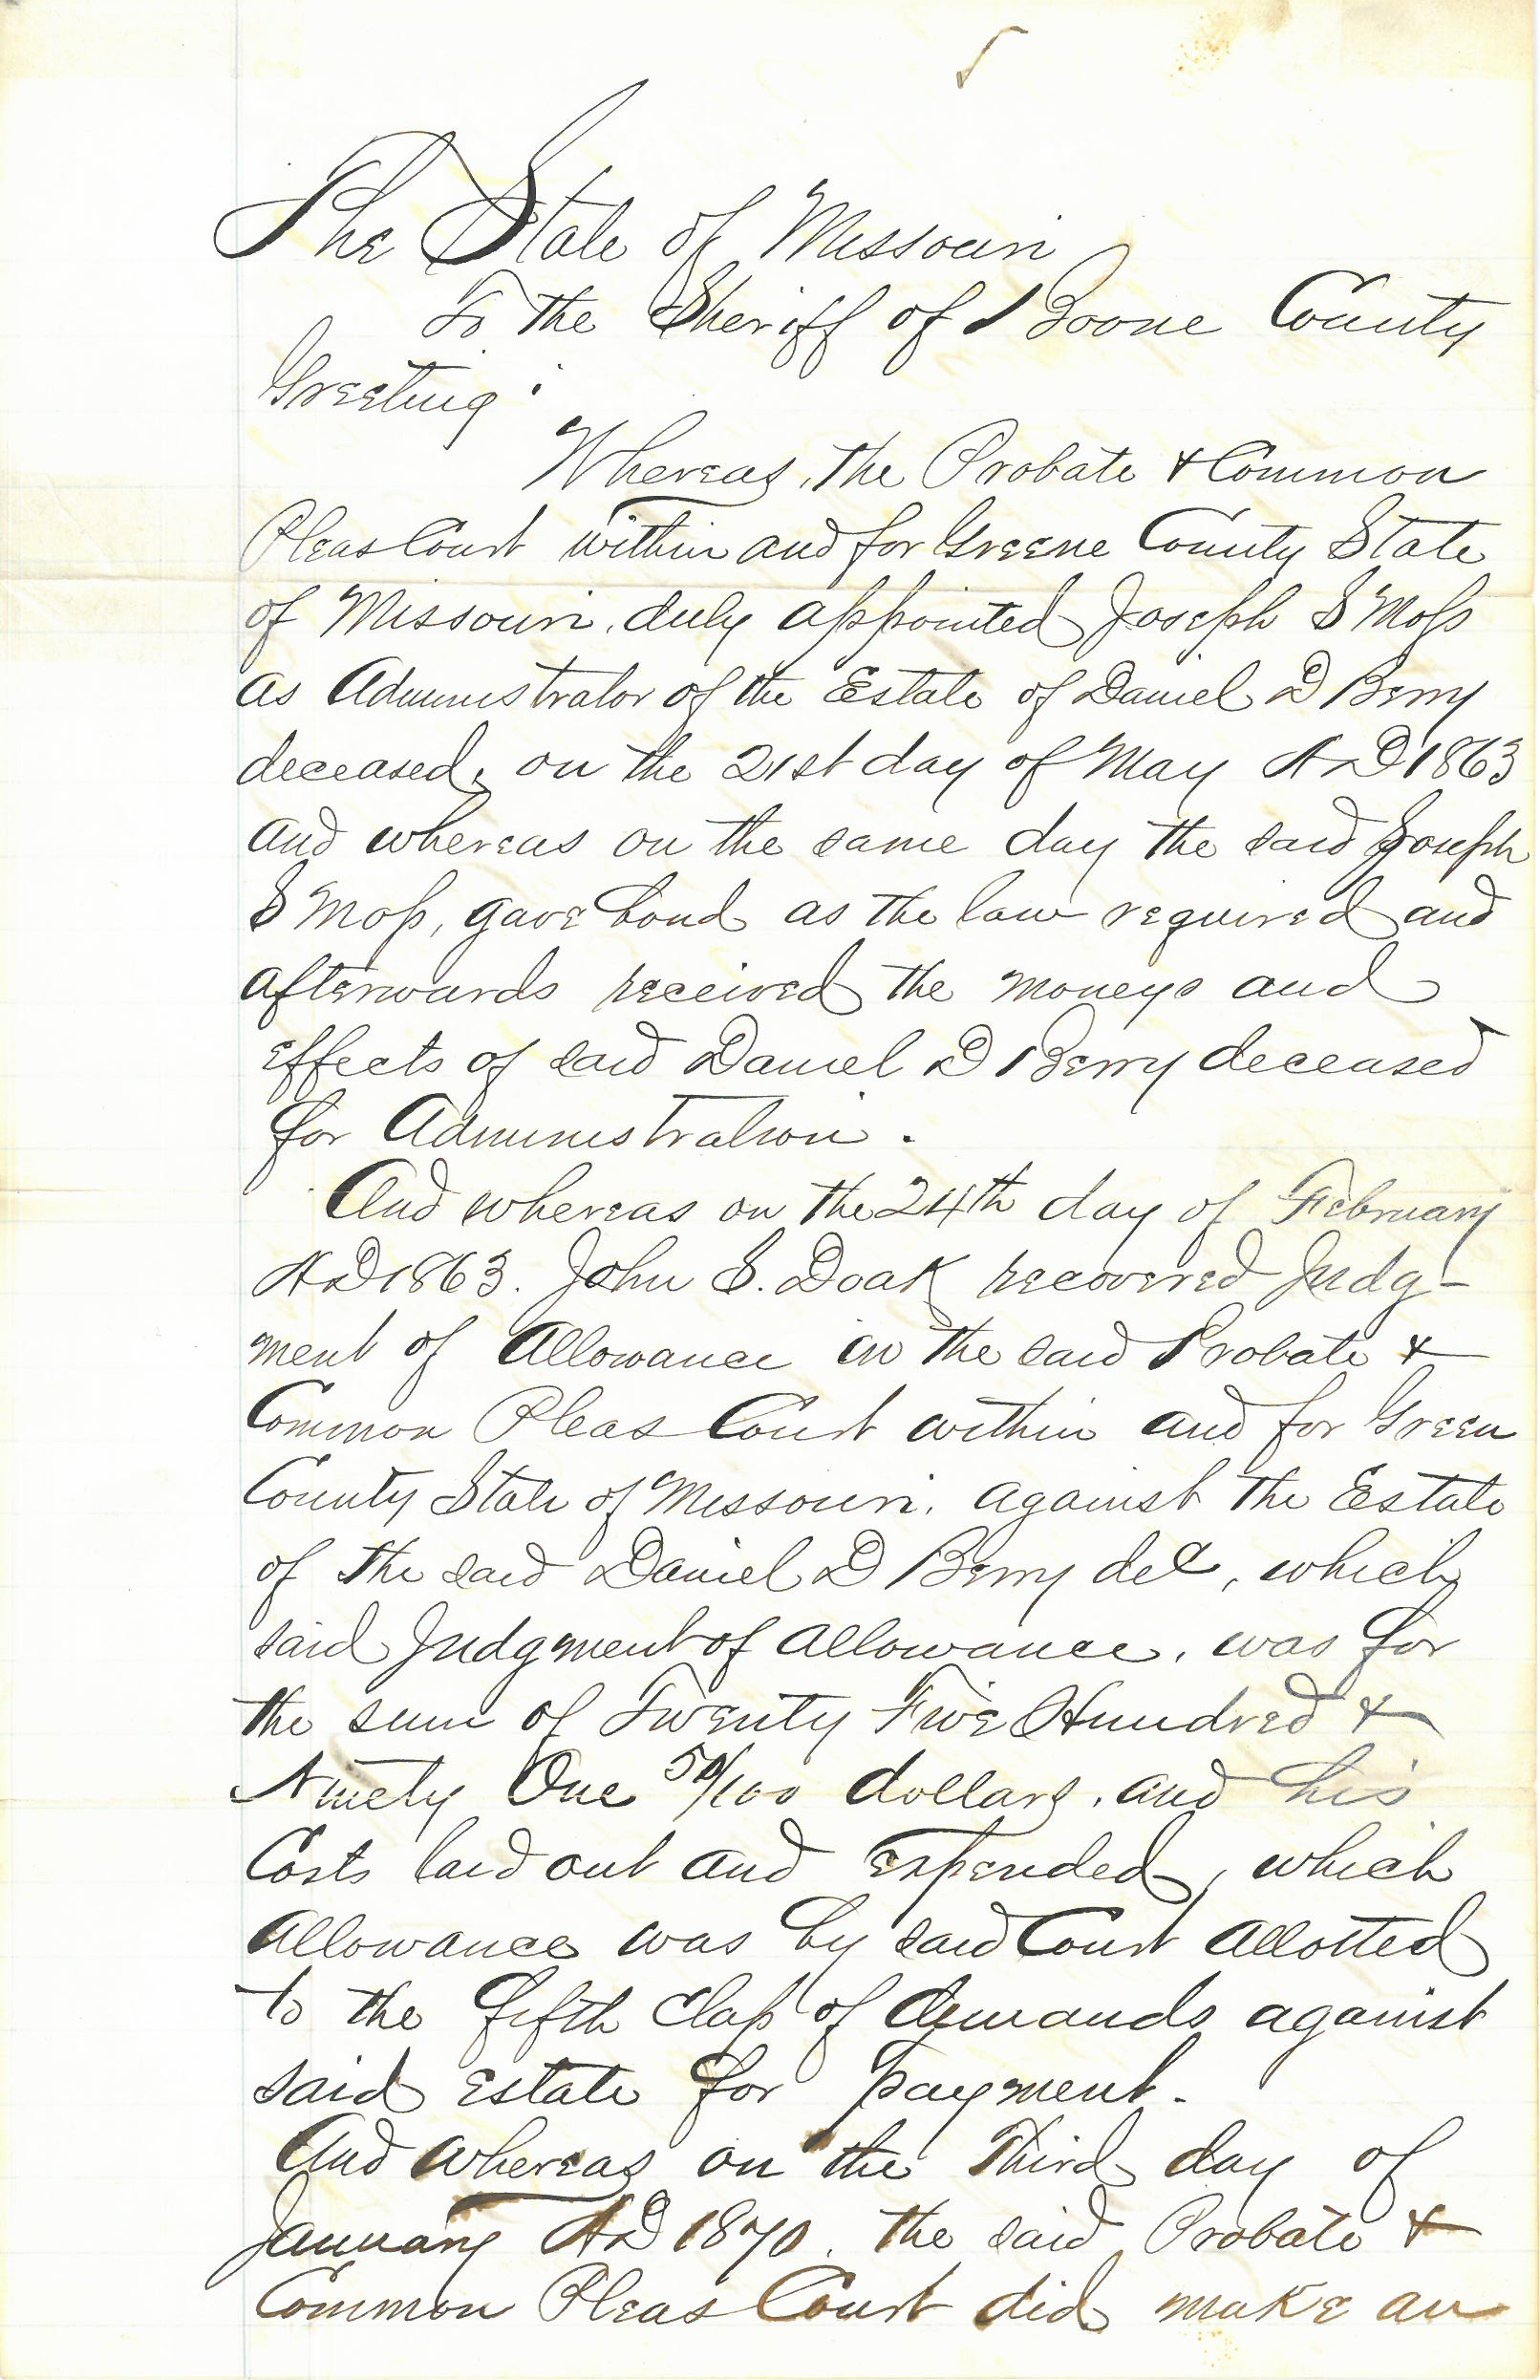 The State of Missouri
To the Sheriff of Boone County
Greeting:
Whereas, the Probate & Common
Pleas Court within and for Greene County State
of Missouri, duly appointed Joseph S Moss
as Administrator of the Estate of Daniel D Berry
deceased, on the 21st day of May AD 1863
and whereas on the same day the said Joseph
S Moss, gave bond as the law required and
afterwards received the moneys and
effects of said Daniel D Berry deceased
for Administration.
And whereas on the 24th day of February
AD 1863. John S. Doak recovered Judg-
ment of Allowance in the said Probate &
Common Pleas Court within and for Green
County State of Missouri, against the Estate
of the said Daniel D Berry decd, which
said Judgment of allowance, was for
the sum of Twenty Five Hundred &
Ninety One 50/100 dollars, and his
Costs laid out and expended, which
allowance was by said Court allotted
to the fifth class of demands against
said Estate for payment.
And whereas on the Third day of
January AD 1870, the said Probate &
Common Pleas Court did make an